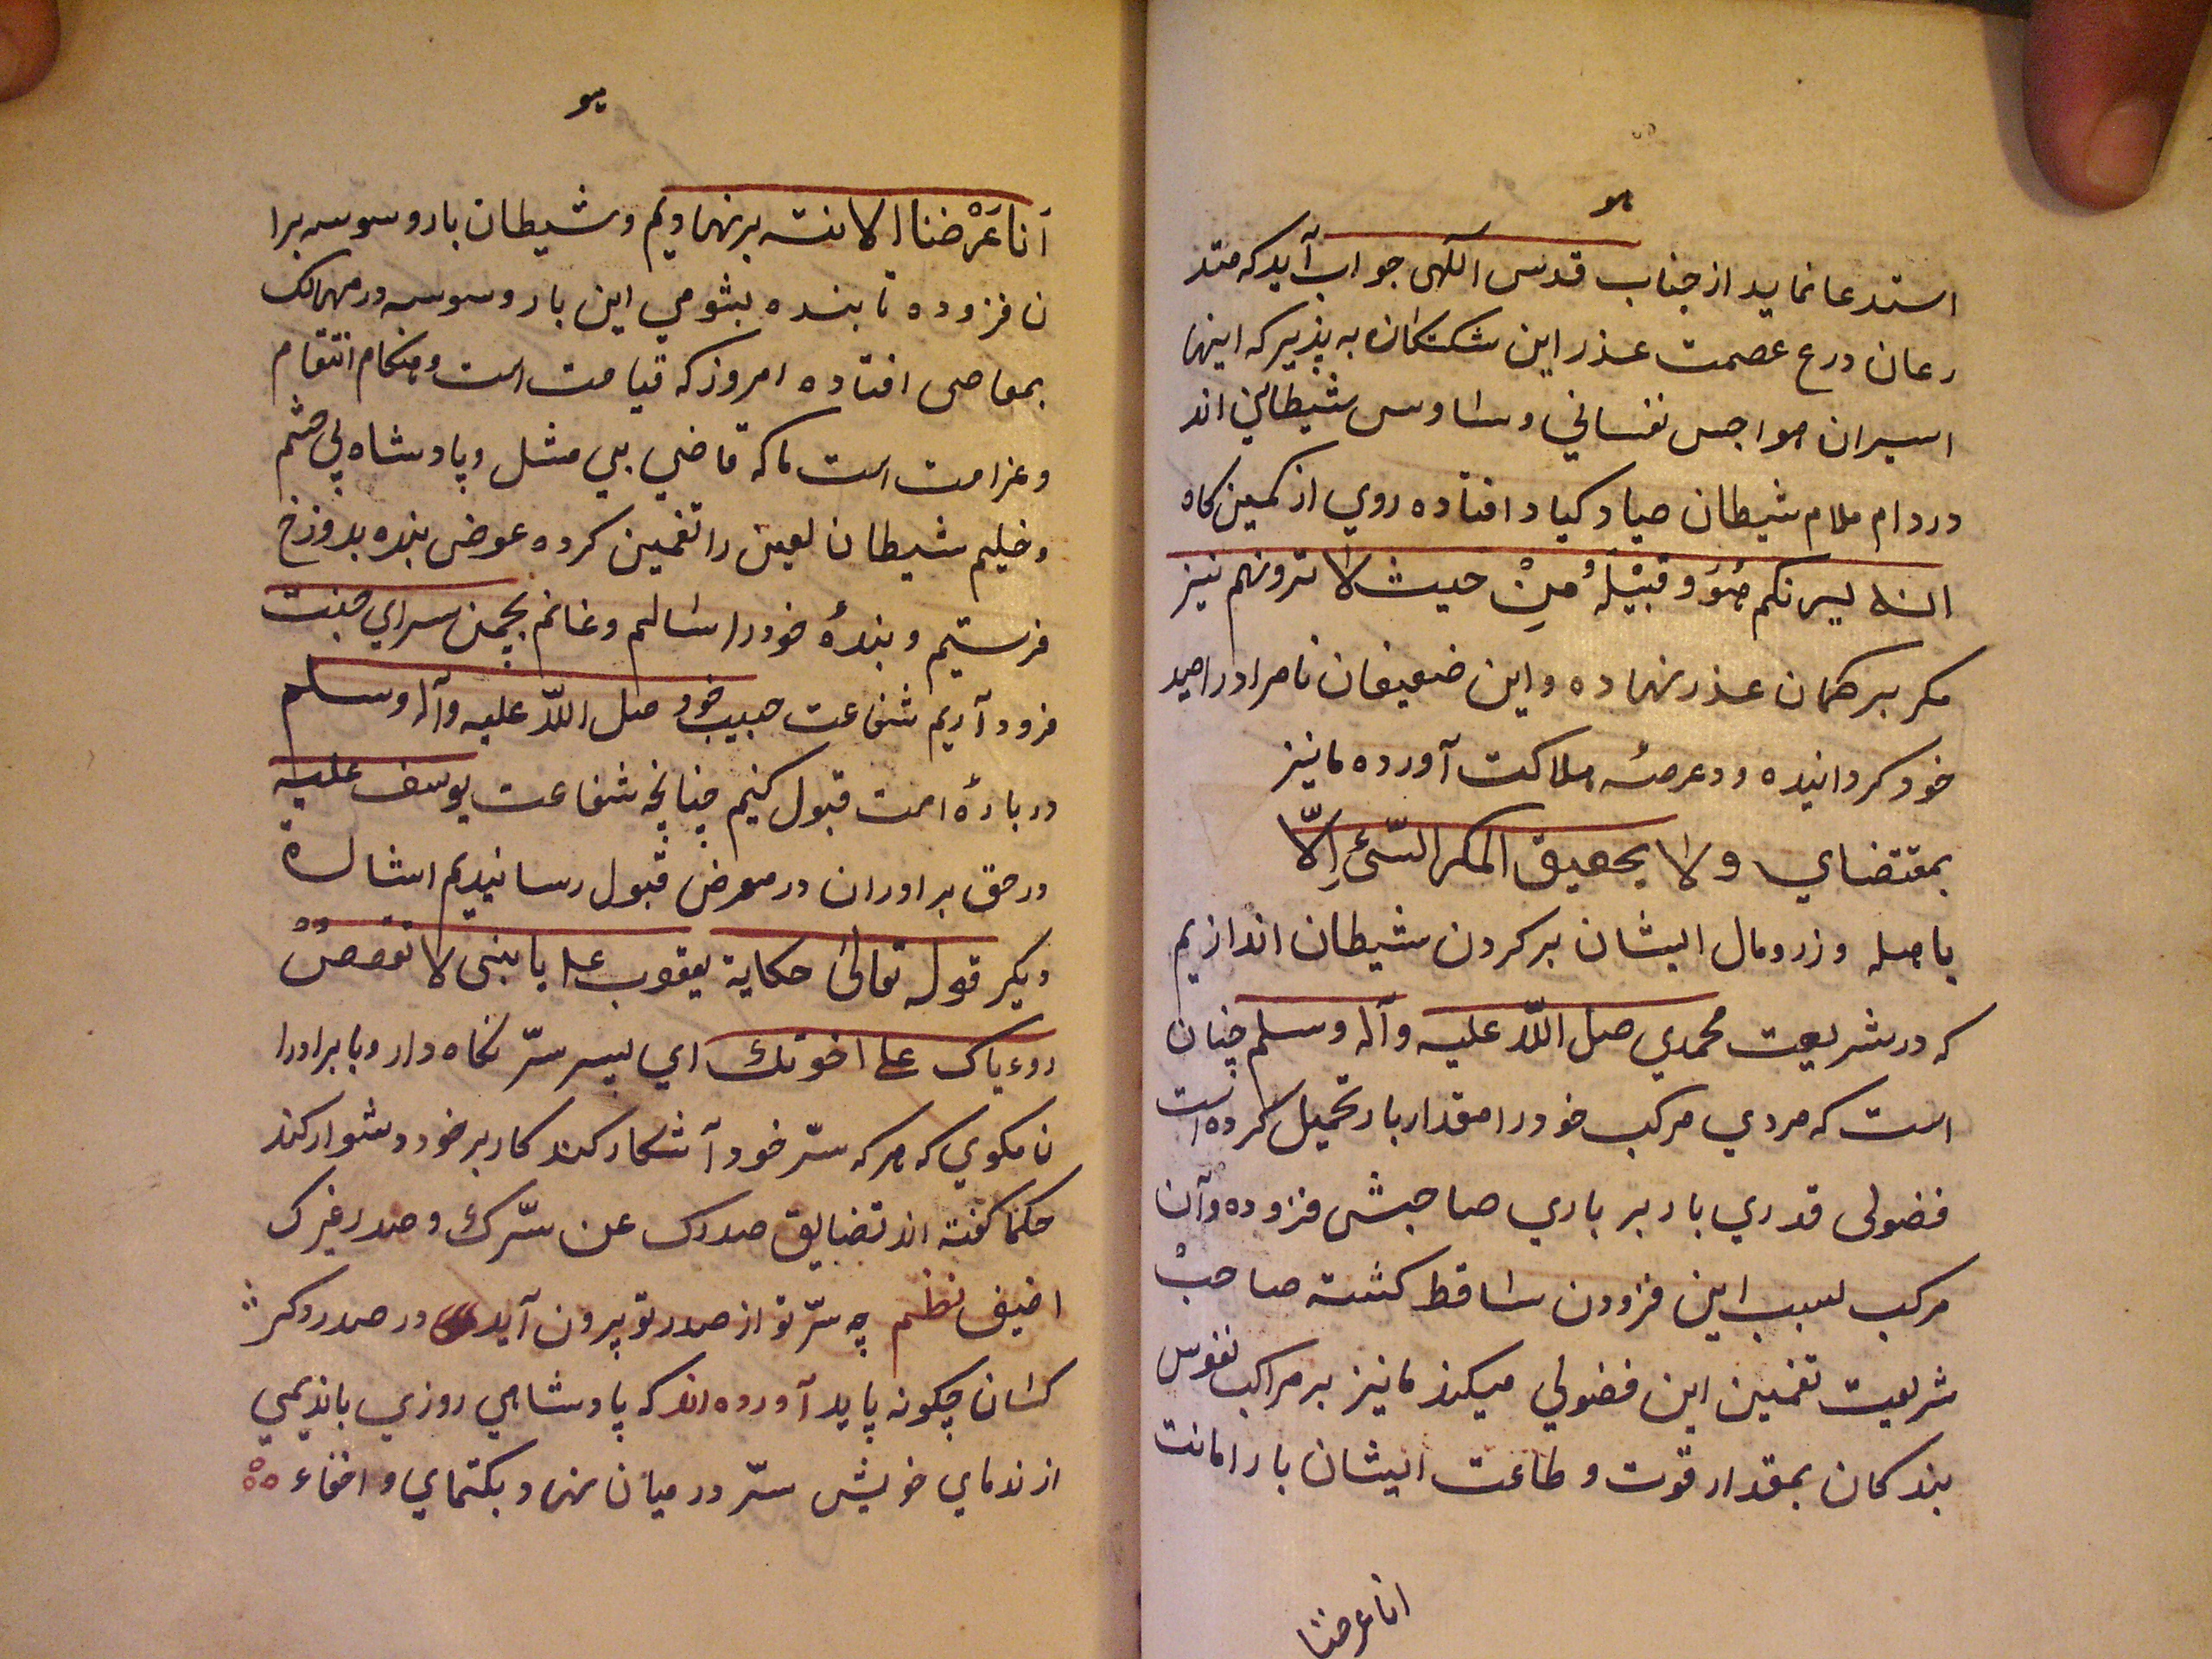 هو
استدعا نماید از جناب قدس الٓهی جواب آید که متد
رعان درع عصمت عذر این شکستکان به پذیر که اینها
اسیران هواجس نفسانی و ساوس شیطانی اند
در دام ملام شیطان صیاد کیاد افتاده روی از کمین کاه
انه یریکم هُوَ و قَبیْلُهُ مِنْ حیث لا ترونهم نیز
مکر بر کمان عذر نهاده و این ضعیفان نامراد را صید
خود کردانیده و در عرصهٔ هلاکت آورده ما نیز
بمقتضای ولا یحیق المکر السّیّئ اِلّا
باهله وزر و مال ایشان بر کردن شیطان اندازیم
که در شریعت محمدی صلی اللّه علیه وآله وسلم چنان
است که مردی مرکب خود را مقدار بار تحمیل کرده است
فضولی قدری بار بر باری صاحبش فزوده و آن
مرکب بسبب این فزودن ساقط کشته صاحب
شریعت تغمین این فضولی میکند ما نیز بر مراکب نفوس
بندکان بمقدار قوت و طاعت ایشان بار امانت
انا عرضنا
هو
اَنا عَرْضنا الامانته بر نهادیم و شیطان بار وسوسه برا
ن فزوده تا بنده بشومی این بار وسوسه در مهالک
بمعاصی افتاده امروز که قیامت است و هنکام انتقام
و غرامت است ما که قاضی بی مثل و پادشاه بی حشم
و خلیم شیطان لعین را تغمین کرده عوض بنده بدوزخ
فرستیم و بندهٔ خود را سالم و غانم بچمن سرای جنت
فرود آریم شفاعت حبیب خود صلی اللّه علیه وآله وسلم
در بارهٔ امت قبول کنیم چنانچه شفاعت یوسف علیه
در حق برادران در معرض قبول رسانیدیم اشارة
دیکر قوله تعالی حکایة یعقوب عل یا بنی لا تقصص
رویاک علی اخوتک ای پسر سرّ نکاه دار و با برادرا
ن مکوی که هر که سرّ خود آشکار کند کار بر خود دشوار کند
حکما کفته اند تضایق صدرک عن سّرک و صدر غیرک
اضیق نظم چه سرّ تو از صدر تو بیرون آید در صدر دکر
کسان چکونه پاید آورده اند که پادشاهی روزی باندیمی
از ندمای خویش سرّ در میان نهاد و بکتمای و اخفاء